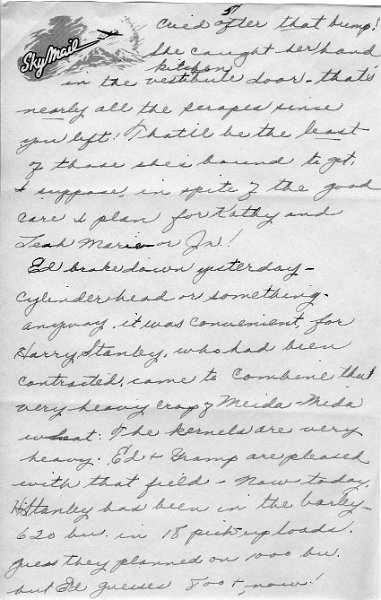 5)
Sky Mail
cried after that bump!
She caught her hand
kitchen
in the vestibule door - that's
nearly all the scrapes since
you left! That'll be the least
of those she's bound to get,
I suppose, in spite of the good
care I plan for Kathy and
Leah Marie or Jr!
Ed broke down yesterday -
cylinder head or something.
anyway, it was convenient, for
Harry Stanley, who had been
contracted, came to combine that
very heavy crop of Meida - Mida
wheat. The kernels are very
heavy. Ed & Gramp are pleased
with that field - Now today,
H Stanley has been in the barley -
620 bu. in 18 pickup loads.
guess they planned on 1000 bu.
but Ed guesses 800+, now!